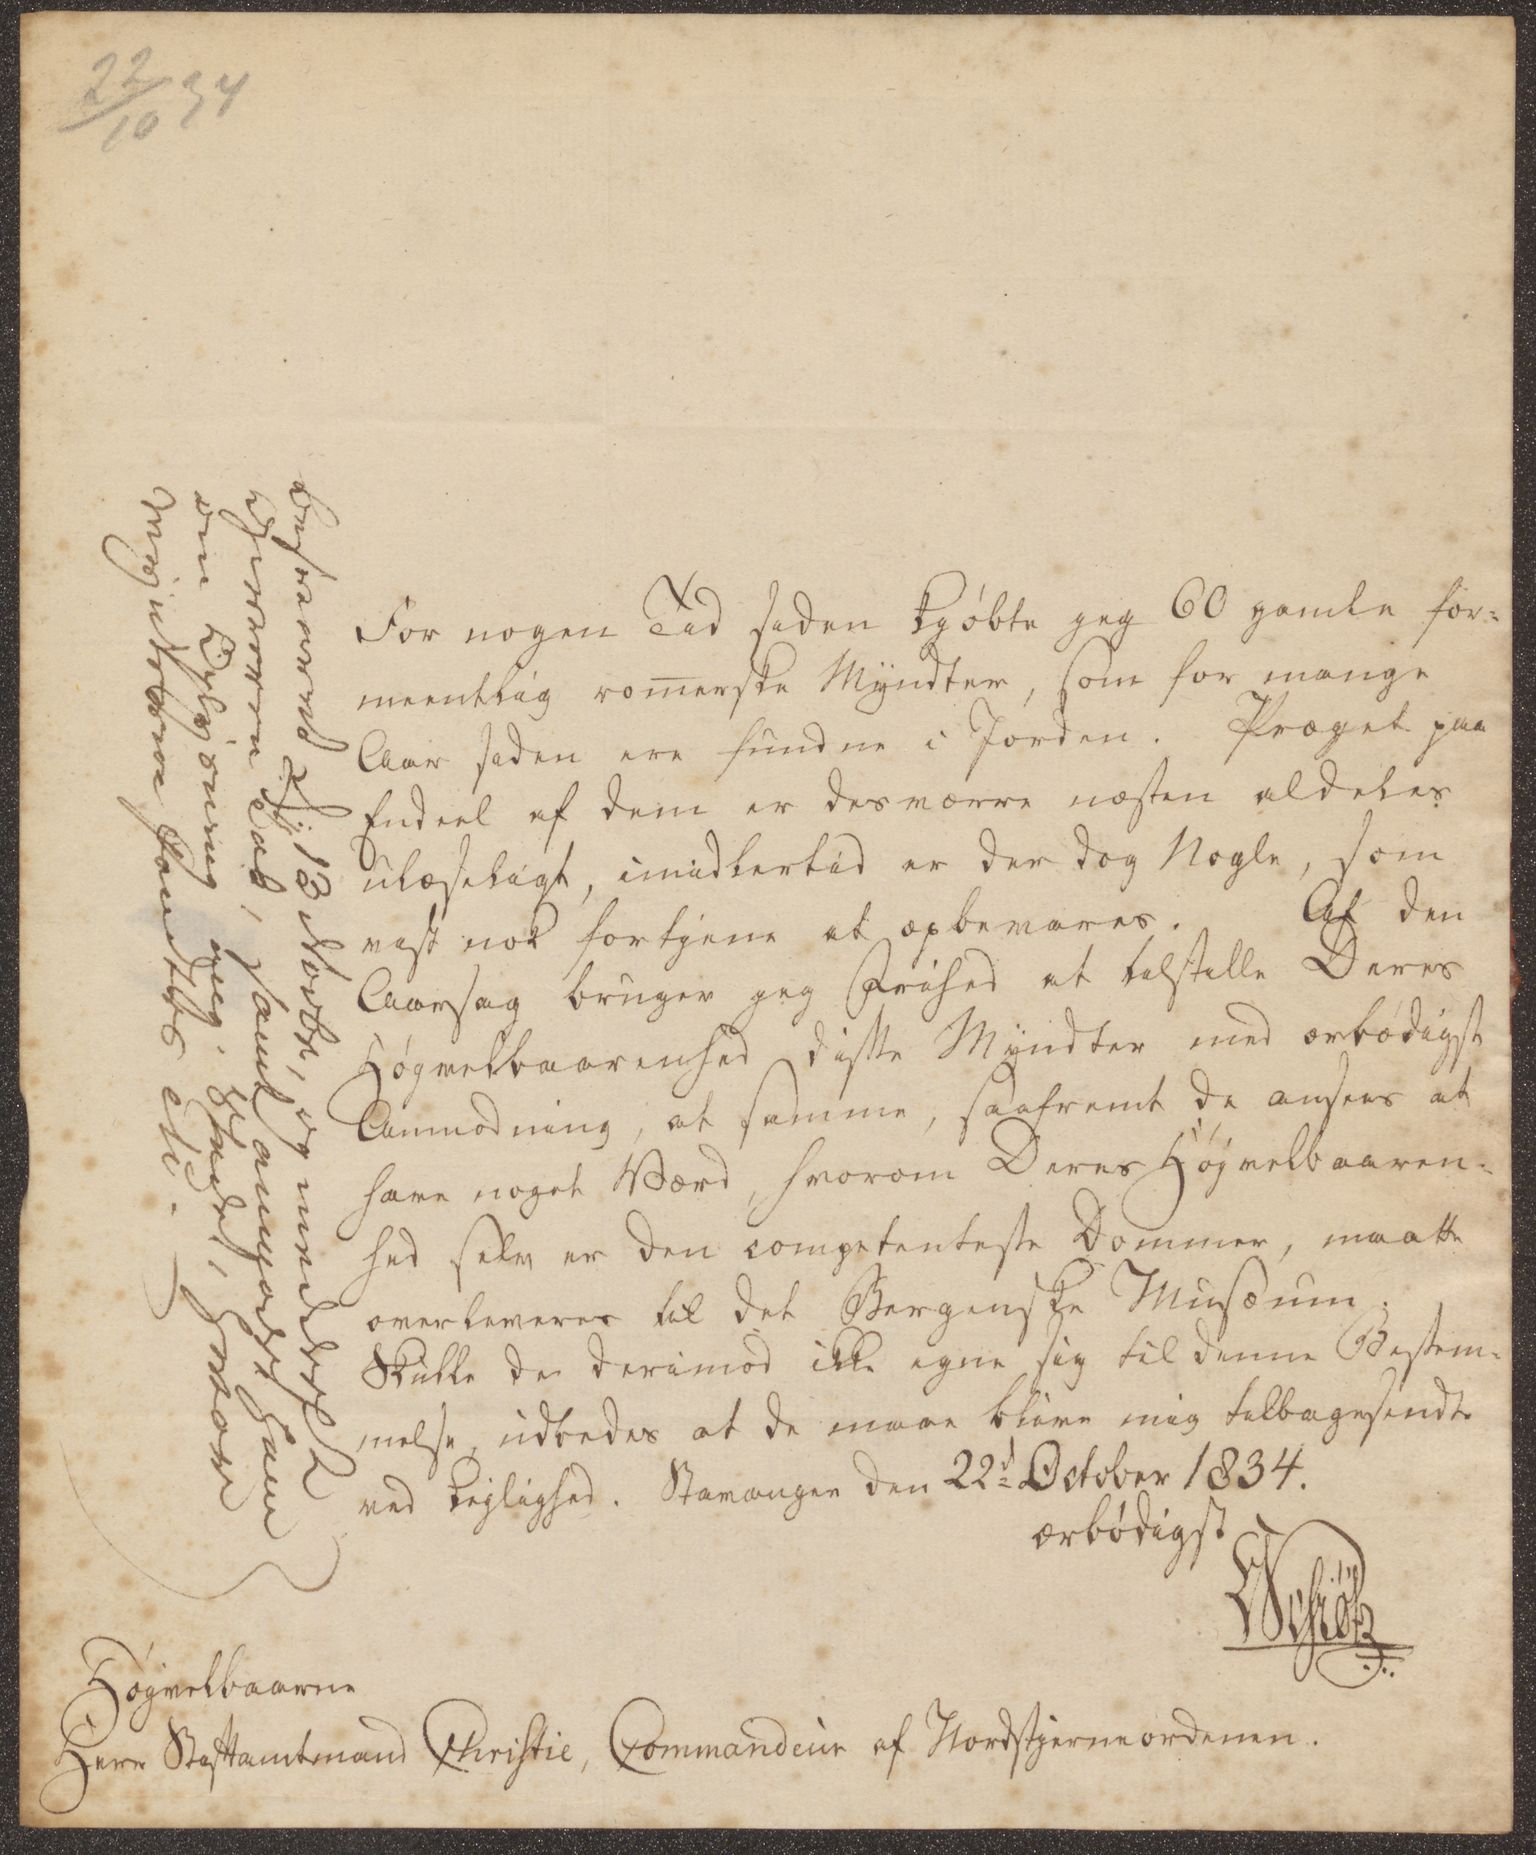 22/10 34
For nogen Tid siden kjøbte jeg 60 gamle for-
meentlig romerske Myndter, som for mange
Aar siden ere fundne i Jorden. Præget paa
Endeel af dem er desværre næsten aldeles
ulæseligt, imidlertid er der dog Nogle, som
vist nok fortjene at opbevares. Af den
Aarsag bruger jeg Frihed at tilstille Deres
Høyvelbaarenhed disse Myndter med ærbødigst
Anmodning, at samme, saafremt de ansees at
have noget Værd, hvorom Deres Høyvelbaaren-
hed selv er den competenteste Dommer, maatte
overleveres til det Bergenske Musæum.
Skulle de derimod ikke egne sig til denne Bestem-
melse, udbedes at de maae blive mig tilbagesendte
ved Lejlighed. Stavanger den 22d October 1834.
ærbødigst
WSchiøtz
Høyvelbaarne
Herr Stiftamtmand Christie, Commandeur af Nordstjerneordenen.
Besvaret 13 Novbr, og meddeelt
samt anmodet ham
om Oplysning